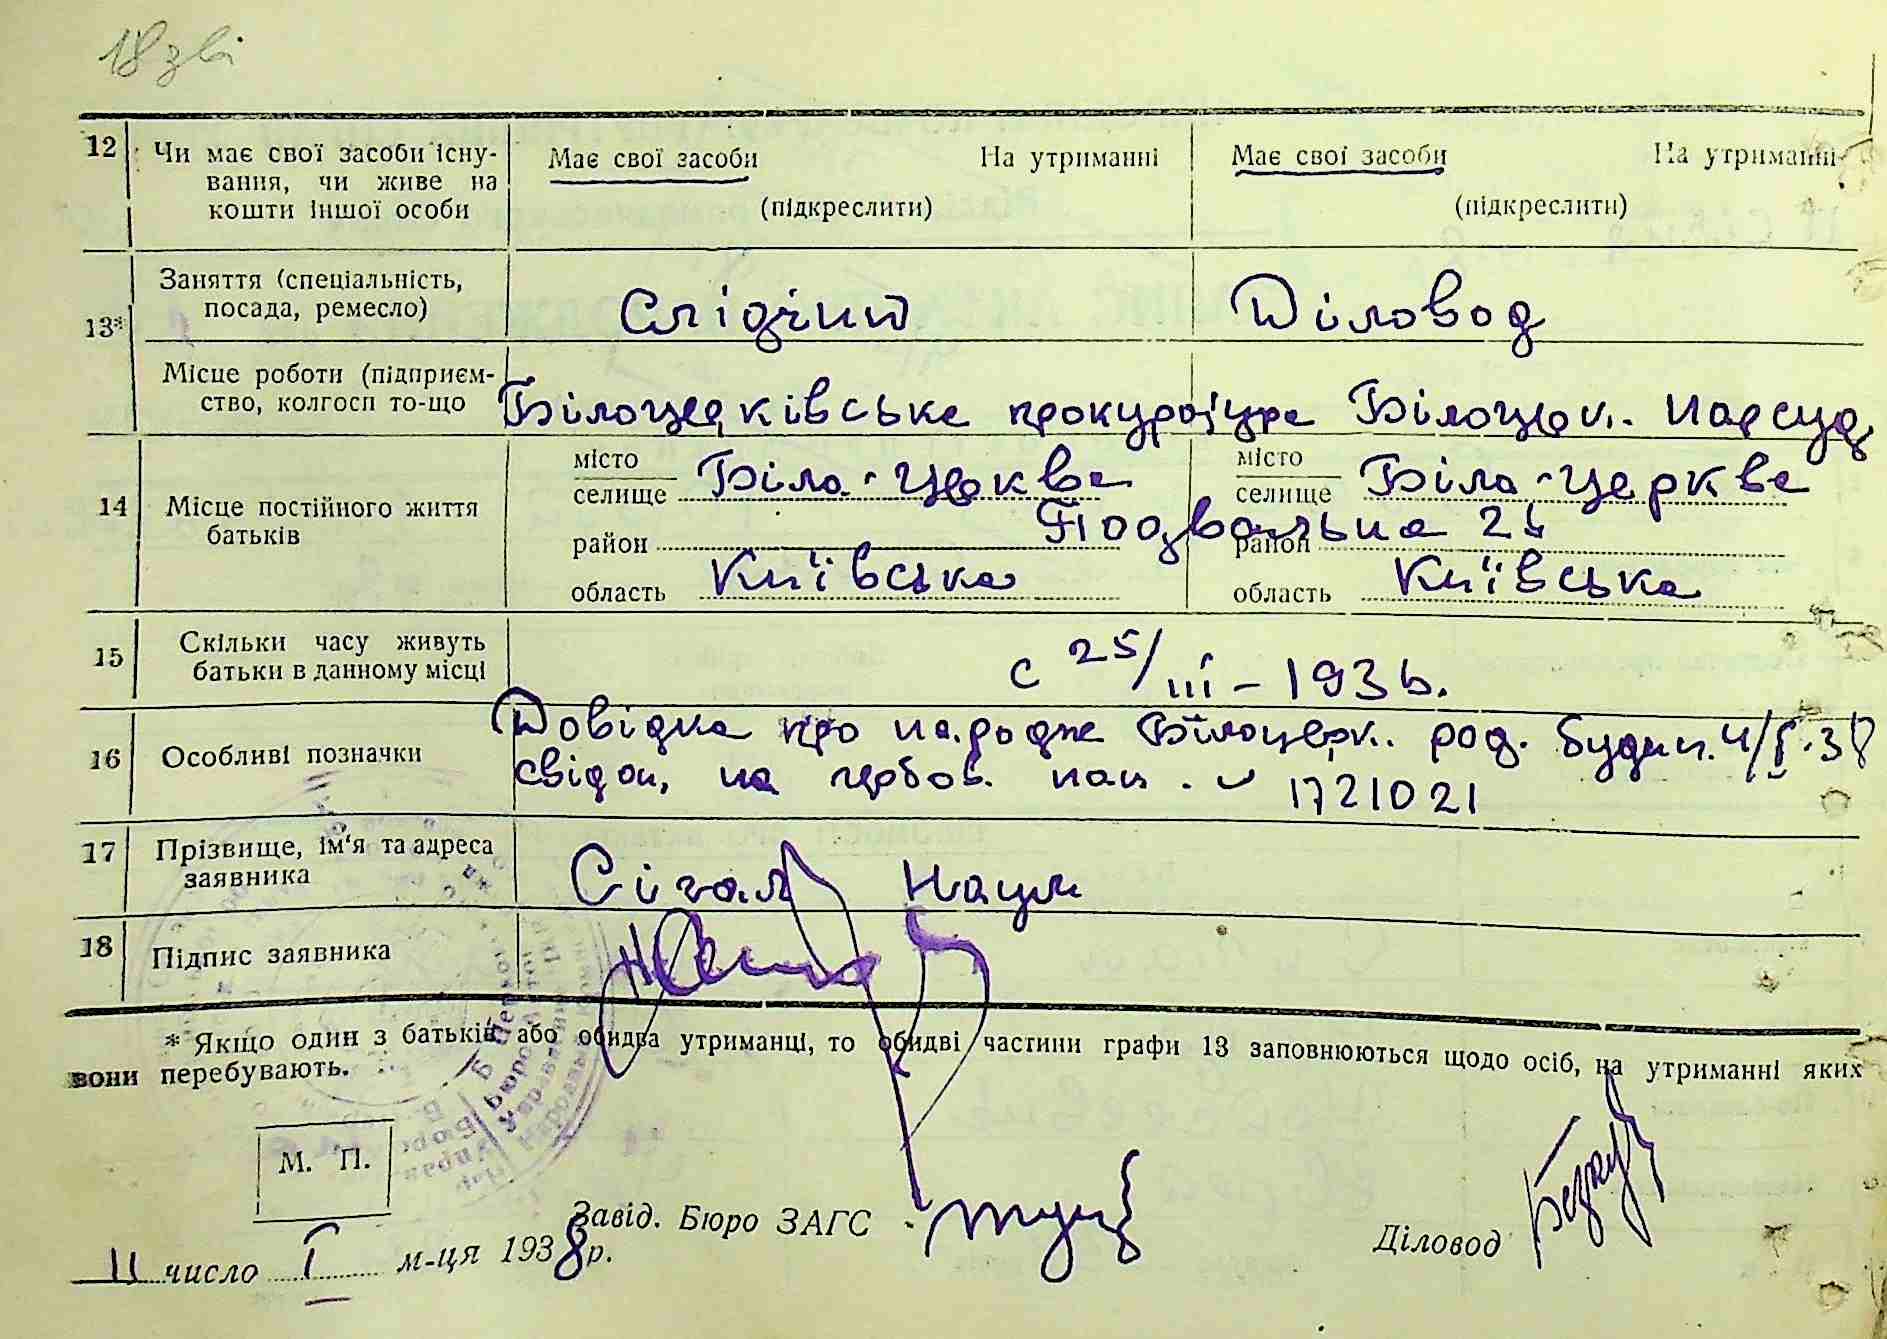 12 Чи має свої засоби існу-
вання, чи живе на
кошти іншої особи
Має свої засоби На утриманні
(підкреслити)
Має свої засоби На утриманні
(підкреслити)
13*
Заняття (спеціальність,
посада, ремесло)
Слідчий
Діловод
Місце роботи (підприєм-
ство, колгосп то-що
Білоцерківська прокуратура
Білоцерк. Нарсуд
14 Місце постійного життя
батьків
місто
селище Біла-Церква
район
область Київська
місто
селище Біла-Церква
Подвальна
район
область Київська
15 Скільки часу живуть
батьки в данному місці
с 25/III - 1936.
16 Особливі позначки
Довідка про народже Білоцерк. род. будин. 4/I.38
свідоц. на 1721021
17 Прізвище, ім'я та адреса
заявника
Сігал Наум
18 Підпис заявника
* Якщо один з батьків або обидва утриманці, то обидві частини графи 13 заповнюються щодо осіб, на утриманні яких
вони перебувають.
М. П.
Завід. Бюро ЗАГС
Діловод
11 число I м-ця 1938 р.